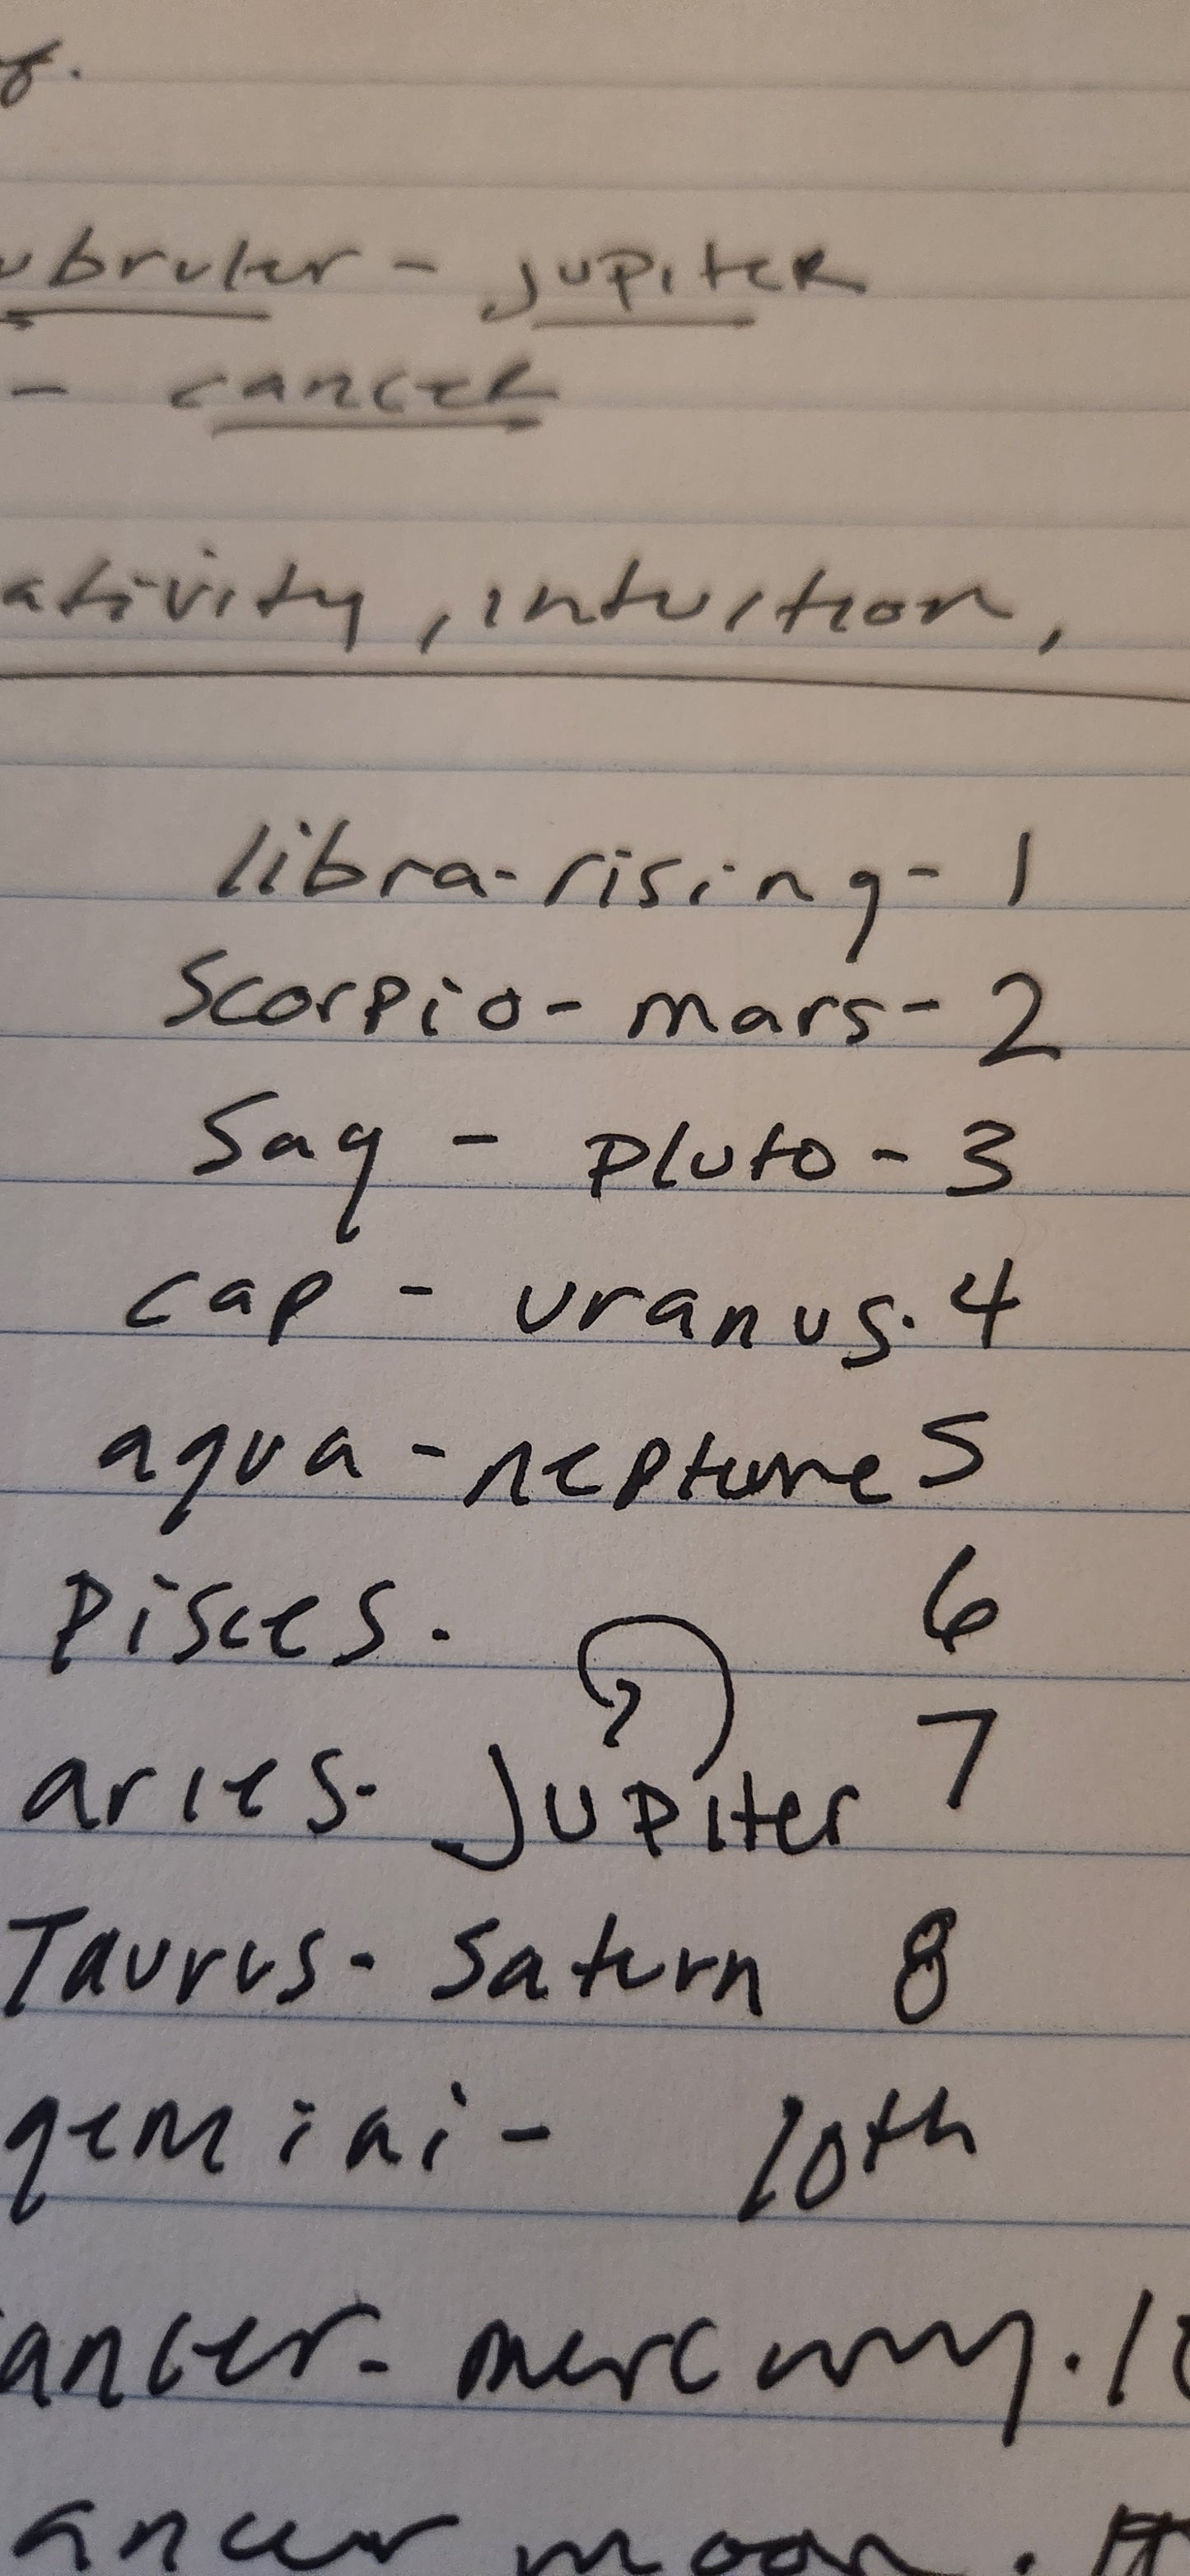 ubruler - jupiter
- cancer
ativity, intuition,
libra-rising- 1
Scorpio- mars- 2
Sag - pluto - 3
cap - uranus. 4
aqua - neptune 5
Pisces. 6
aries- Jupiter 7
Taurus- Saturn 8
gemini - 10th
ancer- mercury. 10
ancer moon.